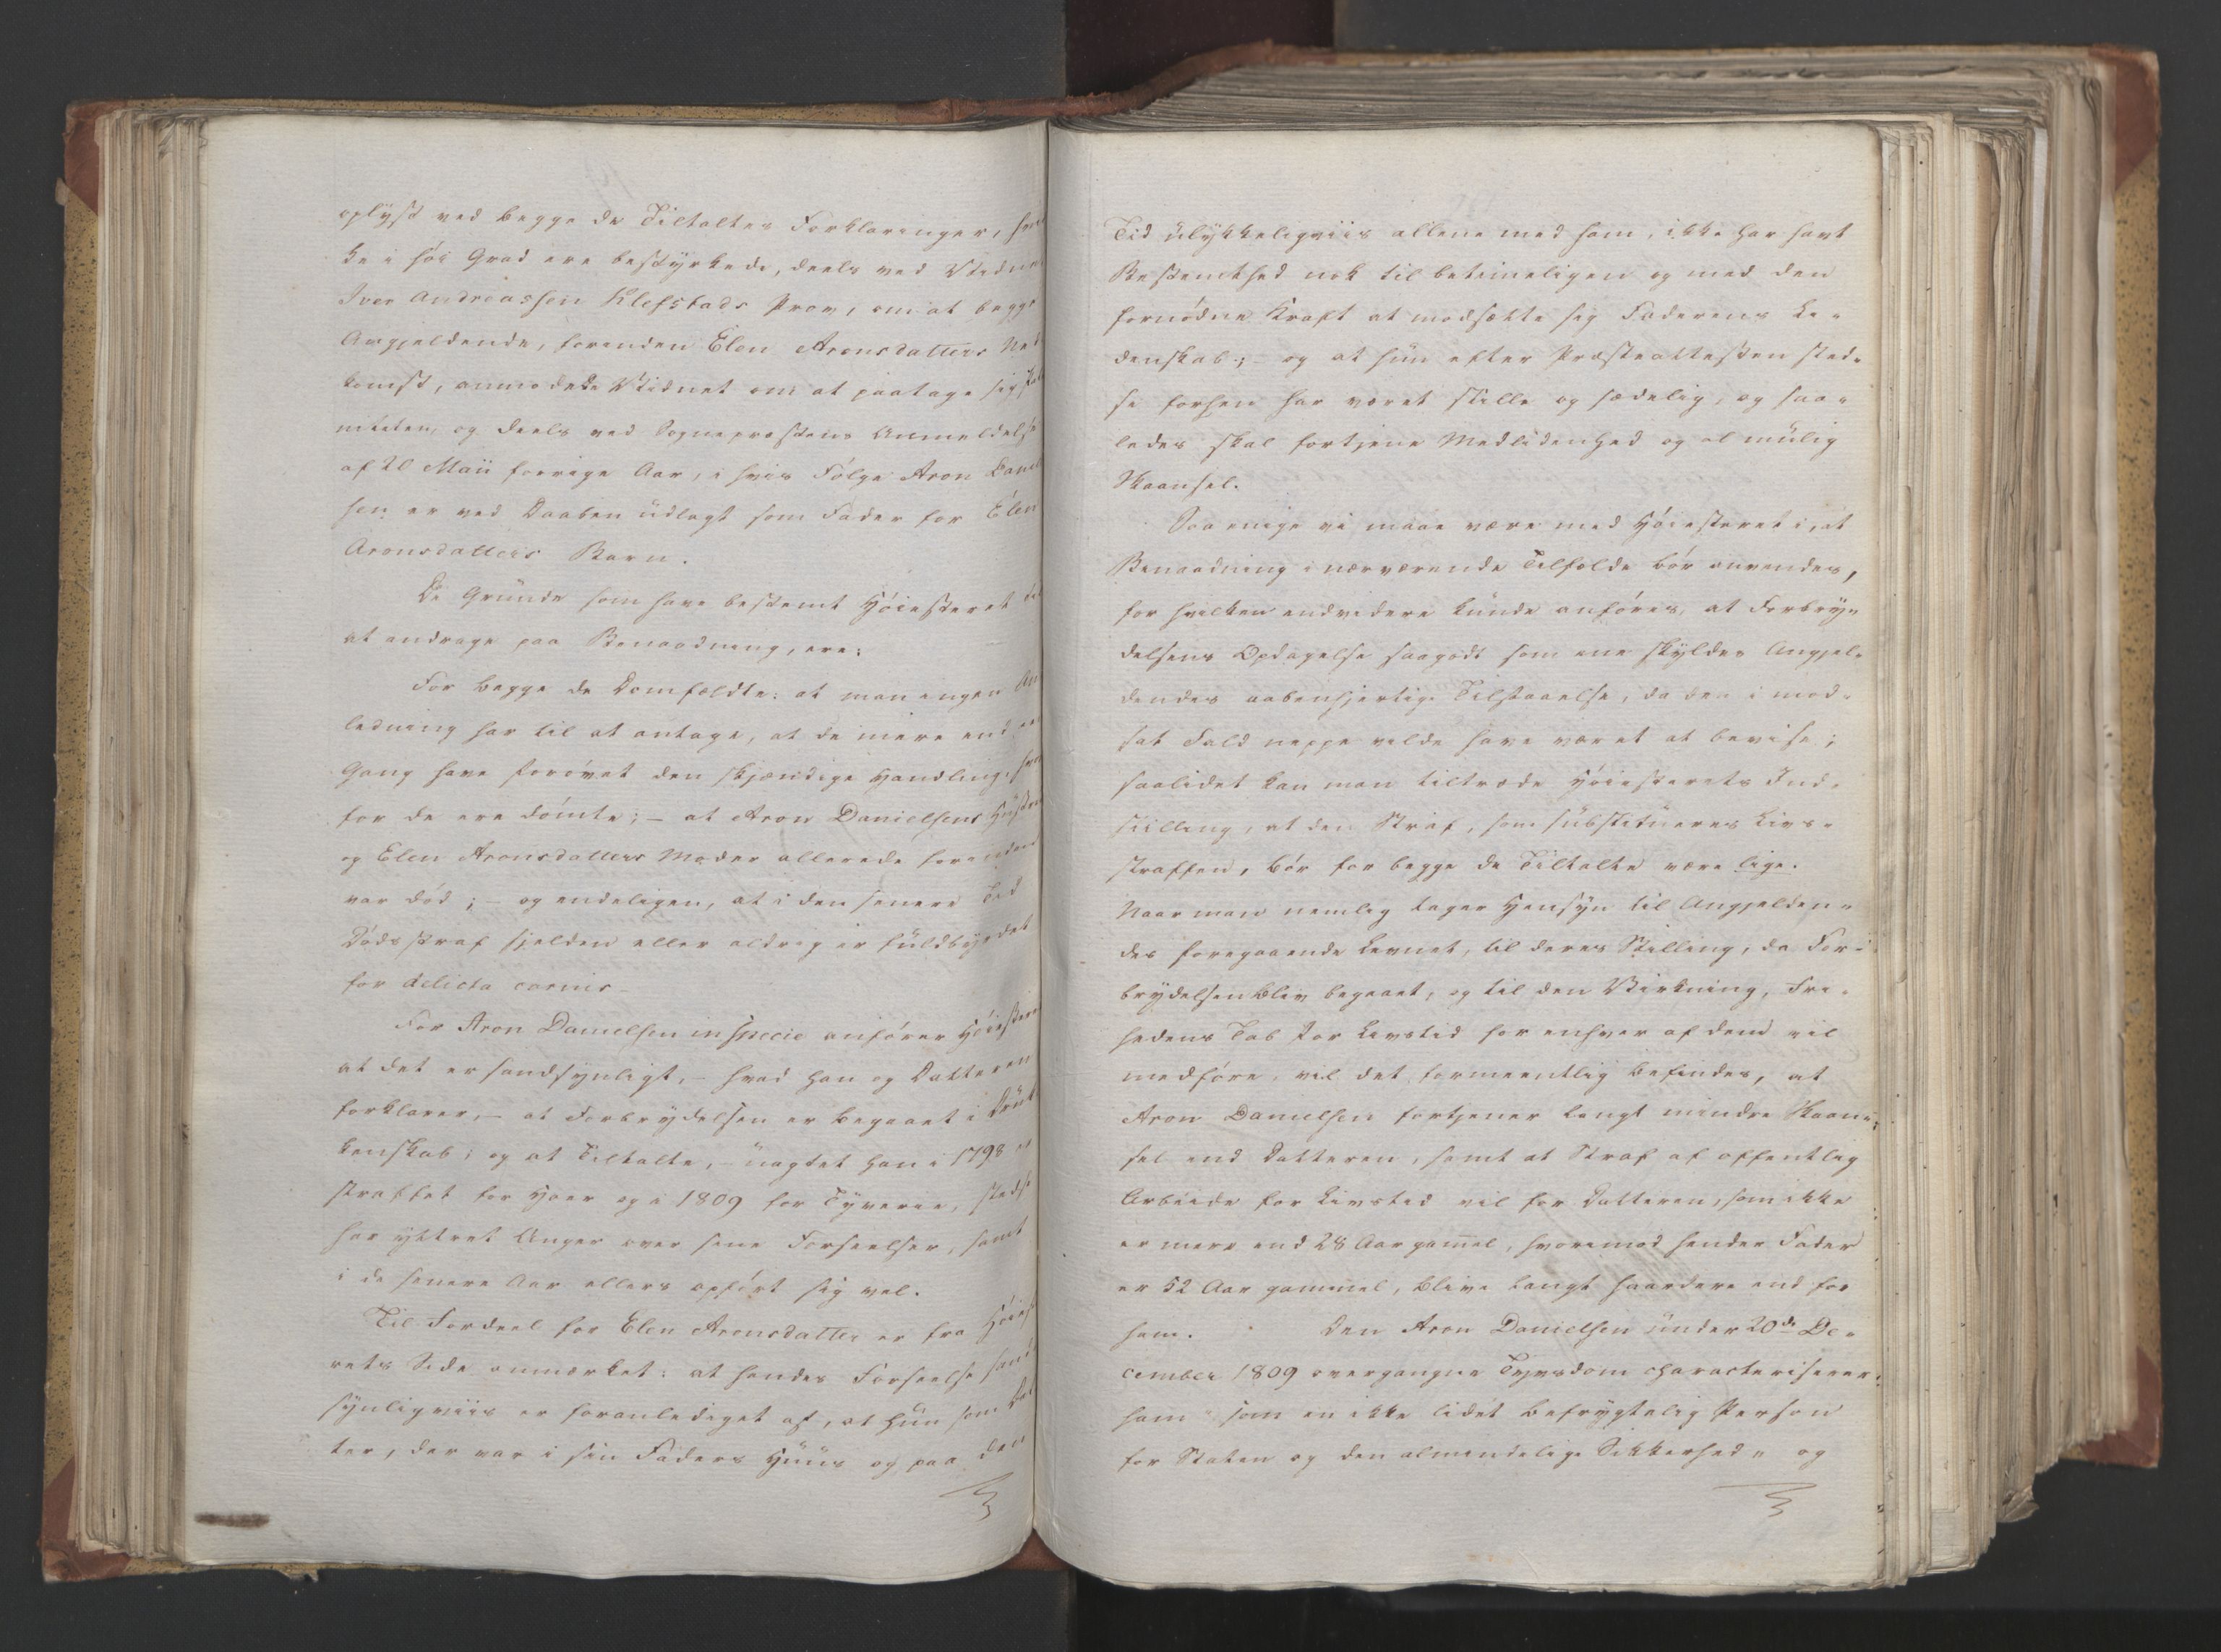 oplyst ved begge de Tiltaltes Forklaringer, hvil
ke i høi Grad ere bestyrkede, deels ved Vidnet
Iver Andreassen Klefstads Prov, om at begge
Angjeldende, forinden Elen Aronsdatters Ned
komst, anmodede Vidnet om at paatage sig Pater
niteten, og deels ved Sognepræstens Anmeldelse
af 20 Maii forrige Aar, i hvis Følge Aron Daniel
sen er ved Daaben udlagt som Fader for Elen
Aronsdatters Barn.
De Grunde som have bestemt Høiesteret til
at andrage paa Benaadning, ere:
For begge de Domfældte: at man ingen An
ledning har til at antage, at de mere end een
Gang have forøvet den skjændige Handling, hvor
for de ere dømte; – at Aron Danielsens Hustru
og Elen Aronsdatters Moder allerede forinden
var død; – og endeligen, at i den senere Tid
Dødsstraf sjelden eller aldrig er fuldbyrdet
for delicta carnis –
For Aron Danielsen in specie anfører Høiesteret
at det er sandsynligt, – hvad han og Datteren
forklarer, – at Forbrydelsen er begaaet i Druk
kenskab; og at Tiltalte, – uagtet han i 1798 er
straffet for Hoer og i 1809 for Tyverie, stedse
har yttret Anger over sine Forseelser, samt
i de senere Aar ellers opført sig vel.
Til Fordeel for Elen Aronsdatter er fra Høieste
rets Side anmærket: at hendes Forseelse sand
synligviis er foranlediget af, at hun som Dat
ter, der var i sin Faders Huus og paa den
Tid ulykkeligviis allene med ham, ikke har havt
Bestemthed nok til betimeligen og med den
fornødne Kraft at modsætte sig Faderens Li-
denskab; – og at hun efter Præsteattesten sted-
se forhen har været stille og sædelig, og saa-
ledes skal fortjene Medlidenhed og al mulig
Skaansel.
Saa enige vi maae være med Høiesteret i, at
Benaadning i nærværende Tilfælde bør anvendes,
for hvilken endvidere kunde anføres, at Forbry-
delsens Opdagelse saagodt som ene skyldes Angjel-
dendes aabenhjertige Tilstaaelse, da den i mod-
sat Fald neppe vilde have været at bevise;
saalidet kan man tiltræde Høiesterets Ind-
stilling, at den Straf, som substitueres Livs-
straffen, bør for begge de Tiltalte være lige.
Naar man nemlig tager Hensyn til Angjelden-
des foregaaende Levnet, til deres Stilling, da For-
brydelsen blev begaaet, og til den Virkning, Fri-
hedens Tab for Livstid for enhver af dem vil
medføre, vil det formeentlig befindes, at
Aron Danielsen fortjener langt mindre Skaan-
sel end Datteren, samt at Straf af offentlig
Arbeide for Livstid vil for Datteren, som ikke
er mere end 28 Aar gamel, hvorimod hendes Fader
er 52 Aar gammel, blive langt haardere end for
ham. Den Aron Danielsen under 20de De-
cember 1809 overgangne Tyvsdom characteriserer
ham "som en ikke lidet befrygtelig Person
for Staten og den almindelige Sikkerhed" og